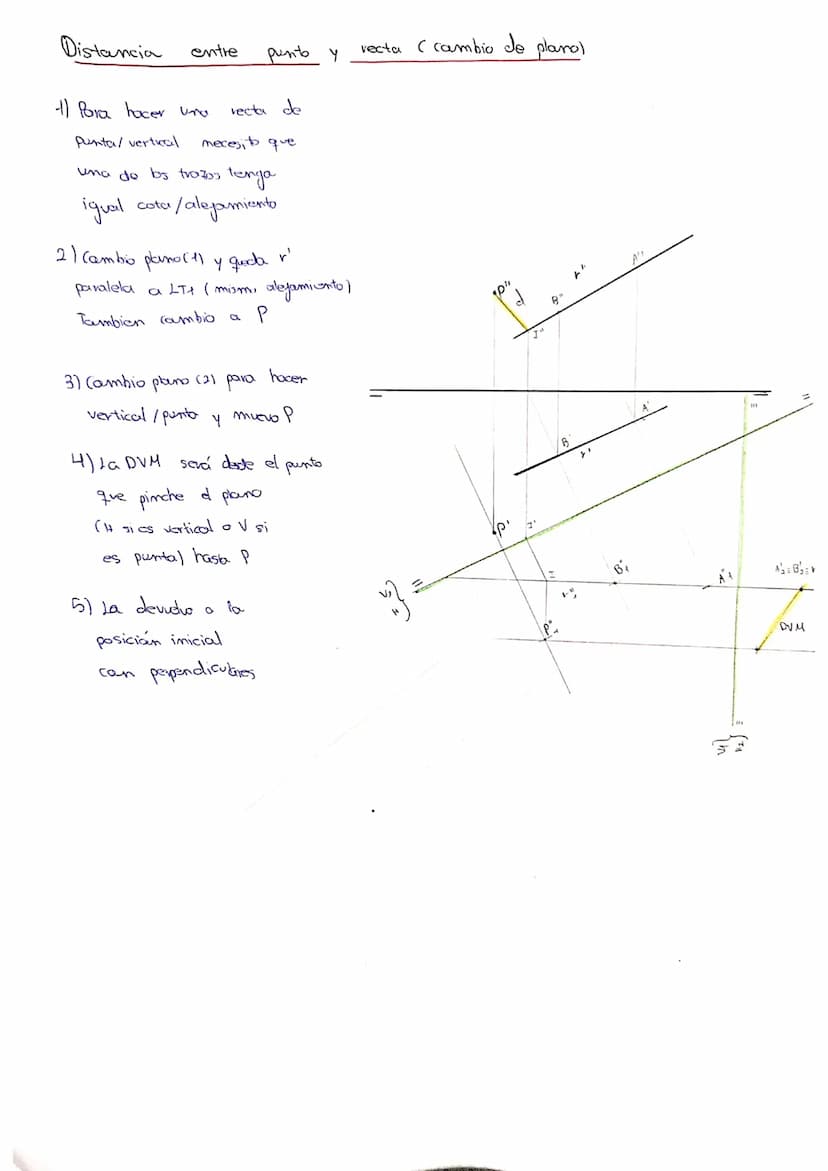 Distancia entre punto y recta (cambio de plano)
1) Para hacer una recta de
punta/vertical necesito que
una de los trazos tenga
igual cota/alejamiento
2) Cambio plano (1) y queda r'
paralela a LT1 (mismo alejamiento)
Tambien cambio a P
3) Cambio plano (2) para hacer
vertical/punto y muevo P
4) La DVM será desde el punto
que pinche el plano
(H si es vertical o V si
es punta) hasta P
5) La devuelvo a la
posición inicial
con perpendiculares
A''
r''
P''
d
B''
I''
A'
B'
r'
P'
I'
V1
H
I
B'1
A'1
A'2≡B'2≡r
r'1
P'1
DVM